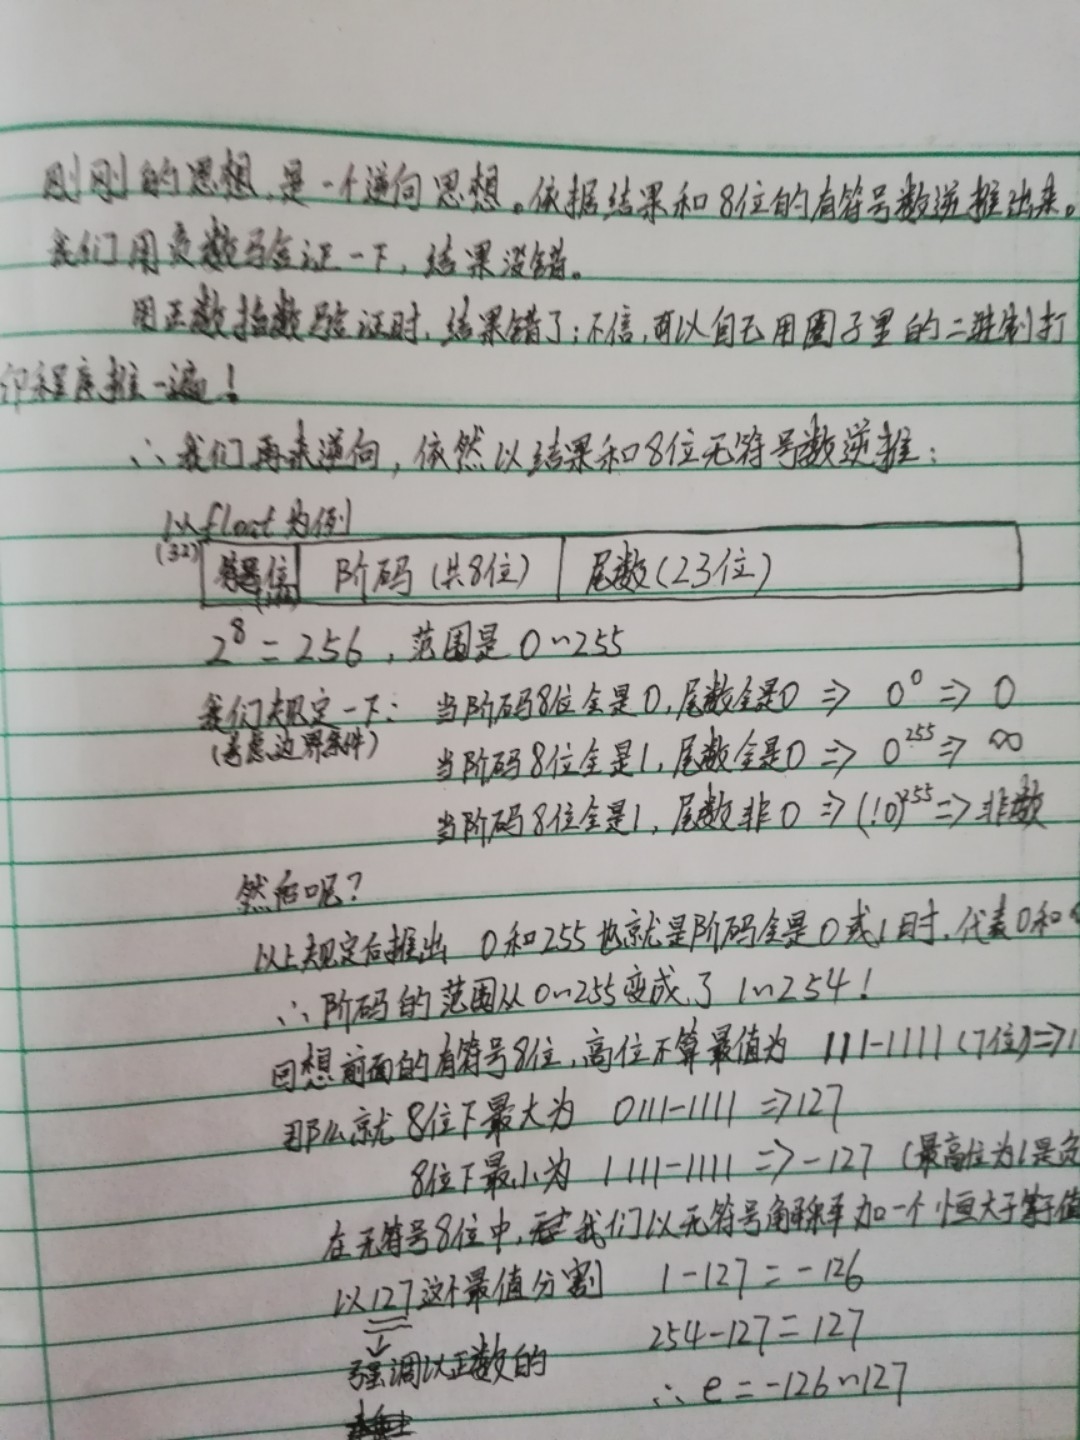 刚刚的思想,是一个逆向思想。依据结果和8位的有符号数逆推出来。
我们用负数验证一下,结果没错。
用正数指数验证时,结果错了;不信,可以自己用圈子里的二进制打
印程序推一遍!
∴我们再来逆向,依然以结果和8位无符号数逆推:
以float为例
(32) 符号位 阶码(共8位) 尾数(23位)
2⁸=256,范围是0~255
我们规定一下: 当阶码8位全是0,尾数全是0 => 0⁰ => 0
(考虑边界条件) 当阶码8位全是1,尾数全是0 => 0²⁵⁵ => ∞
当阶码8位全是1,尾数非0 => (!0)²⁵⁵ => 非数
然后呢?
以上规定后推出 0和255也就是阶码全是0或1时,代表0和
∴阶码的范围从0~255变成了 1~254!
回想前面的有符号8位,高位不算最值为 111-1111(7位)=>1
那么就8位下最大为 0111-1111 => 127
8位下最小为 1111-1111 => -127 (最高位为1是负
在无符号8位中,我们以无符号角度加一个恒大于等于值
以127这个最值分割 1-127=-126
↓ 254-127=127
强调以正数的 ∴e=-126~127